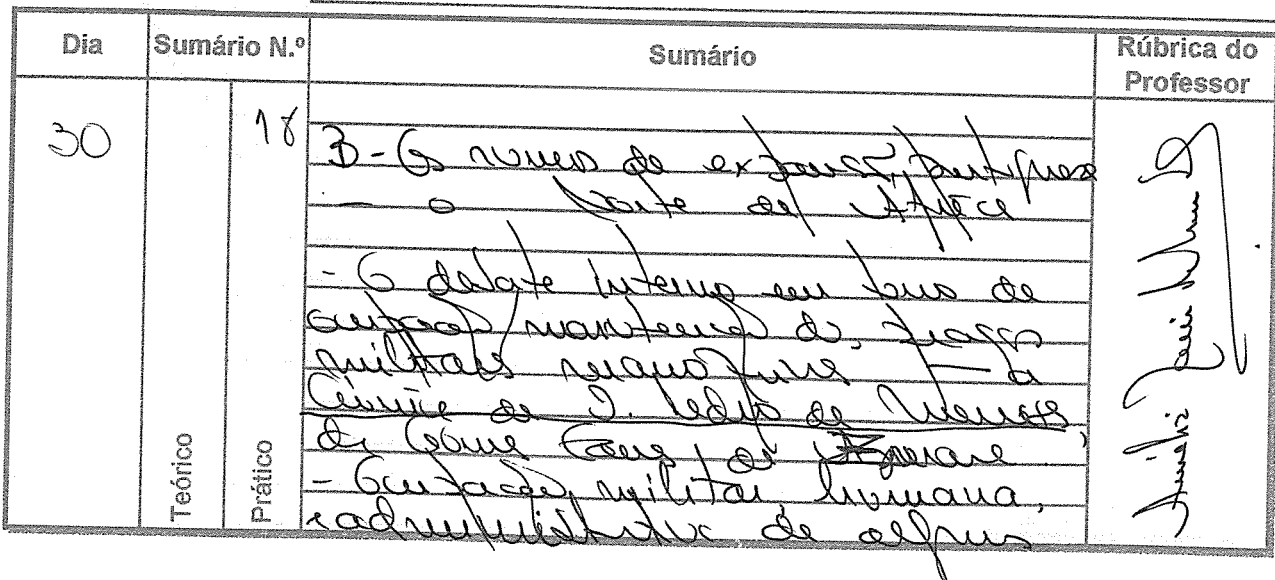 Dia Sumário N.º Sumário Rúbrica do Professor
30 18
3 - Os rumos da expansão portuguesa
- o Norte de África
- O debate interno em torno da
ocupação manutenção das praças
militares
- a
Crónica de D. Pedro de Meneses
de Gomes Eanes de Zurara
- Ocupação militar, humana,
e administrativa de alguns
Teórico
Prático